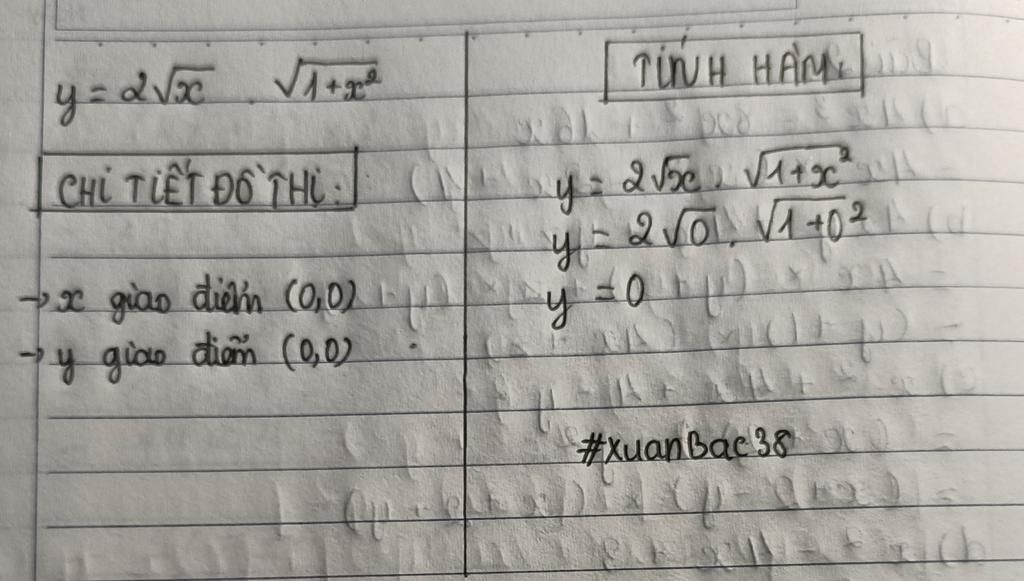 y = 2√x . √1+x²
CHI TIẾT ĐỒ THỊ:
→ x giao điểm (0,0)
→ y giao điểm (0,0)
TÍNH HÀM
y = 2√x . √1+x²
y = 2√0 . √1+0²
y = 0
#XuanBac38